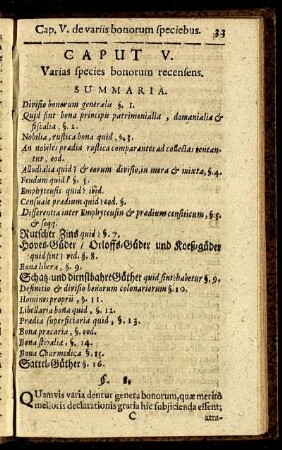 Cap. V. de variis bonorum speciebus. 33
CAPUT V.
Varias species bonorum recensens.
SUMMARIA.
Divisio bonorum generalis §. 1.
Quid sint bona principis patrimonialia, domanialia &
fiscalia, §. 2.
Nobilia, rustica bona quid, §. 3.
An nobiles prædia rustica comparantes ad collectas tenean-
tur, eod.
Allodialia quid? & eorum divisio, in mera & mixta, §. 4.
Feudum quid? §. 5.
Emphyteusis quid? ibid.
Censuale prædium quid? eod. §.
Differentia inter Emphyteusin & prædium censiticum, §. 5.
& seqq.
Rutscher Zins quid? §. 7.
Hovet-Güder / Orloffs-Güder und Koeß-güder
quid sint? vid. §. 8.
Bona libera, §. 9.
Schatz- und dienstbahre Güther quid sint: habetur §. 9.
Definitio & divisio bonorum colonariorum §. 10.
Homines proprii, §. 11.
Libellaria bona quid, §. 12.
Prædia superficiaria quid, §. 13.
Bona precaria, §. eod.
Bona steralia, §. 14.
Bona Churmedica §. 15.
Sattel-Güther §. 16.
§. 1.
QUamvis varia dentur genera bonorum, quæ meritò
melioris declarationis gratia hic subjicienda essent;
C attra-